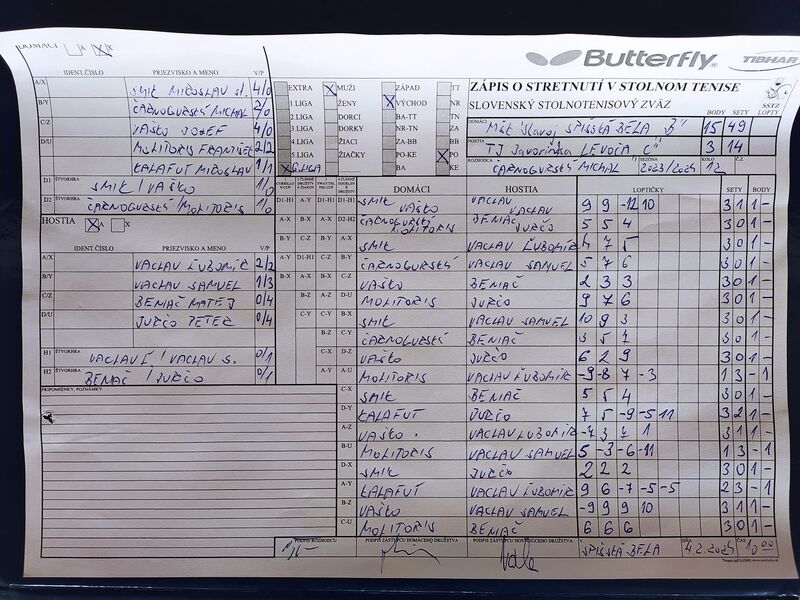 DOMÁCI A X
Butterfly
TIBHAR
IDENT.ČÍSLO PRIEZVISKO A MENO V/P
A/X SMIK MIROSLAV st. 4/0
B/Y ČARNOGURSKÝ MICHAL 2/0
C/Z VAŠKO JOZEF 4/0
D/U MOLITORIS FRANTIŠEK 2/2
KALAFUT MIROSLAV 1/1
D1 ŠTVORHRA SMIK / VAŠKO 1/0
D2 ŠTVORHRA ČARNOGURSKÝ / MOLITORIS 1/0
EXTRA MUŽI ZÁPAD TT
1.LIGA ŽENY VÝCHOD NR
2.LIGA DORCI BA-TT TN
3.LIGA DORKY NR-TN ZA
4.LIGA ŽIACI ZA-BB BB
5.LIGA ŽIAČKY PO-KE PO
6.LIGA BA KE
ZÁPIS O STRETNUTÍ V STOLNOM TENISE
SLOVENSKÝ STOLNOTENISOVÝ ZVÄZ
SSTZ
BODY SETY LOPTY
DOMÁCI MŠK Slavoj SPIŠSKÁ BELÁ "B" 15 49
HOSTIA TJ Javorinka LEVOČA "C" 3 14
ROZHODCA ČARNOGURSKÝ MICHAL SEZÓNA 2023/2024 KOLO 12 Č.Z.
HOSTIA A X
IDENT.ČÍSLO PRIEZVISKO A MENO V/P
A/X VACLAV ĽUBOMÍR 2/2
B/Y VACLAV SAMUEL 1/3
C/Z BENIAČ MATEJ 0/4
D/U JURČO PETER 0/4
H1 ŠTVORHRA VACLAV Ľ / VACLAV S. 0/1
H2 ŠTVORHRA BENIAČ / JURČO 0/1
PRIPOMIENKY, POZNÁMKY
DOMÁCI HOSTIA LOPTIČKY SETY BODY
D1-H1 A-Y D1-H1 D1-H1 SMIK VAŠKO VACLAV VACLAV 9 9 -12 10 3 1 1 -
A-X B-X A-X D2-H2 ČARNOGURSKÝ MOLITORIS BENIAČ JURČO 5 5 4 3 0 1 -
B-Y C-Z B-Y A-X SMIK VACLAV ĽUBOMÍR 4 7 5 3 0 1 -
A-Y D1-H1 C-Z B-Y ČARNOGURSKÝ VACLAV SAMUEL 5 7 6 3 0 1 -
B-X A-X B-X C-Z VAŠKO BENIAČ 2 3 3 3 0 1 -
B-Z A-Z D-U MOLITORIS JURČO 9 7 6 3 0 1 -
C-Y C-Y B-X SMIK VACLAV SAMUEL 10 9 3 3 0 1 -
B-Z C-Y ČARNOGURSKÝ BENIAČ 3 5 7 3 0 1 -
C-X D-Z VAŠKO JURČO 6 2 9 3 0 1 -
A-Y A-U MOLITORIS VACLAV ĽUBOMÍR -9 -8 7 -3 1 3 - 1
C-X SMIK BENIAČ 5 5 4 3 0 1 -
D-Y KALAFUT JURČO 7 5 -9 -5 11 3 2 1 -
A-Z VAŠKO VACLAV ĽUBOMÍR -7 3 7 1 3 1 1 -
B-U MOLITORIS VACLAV SAMUEL 5 -3 -6 -11 1 3 - 1
D-X SMIK JURČO 2 2 2 3 0 1 -
A-Y KALAFUT VACLAV ĽUBOMÍR 9 6 -7 -5 -5 2 3 - 1
B-Z VAŠKO VACLAV SAMUEL -9 9 9 10 3 1 1 -
C-U MOLITORIS BENIAČ 6 6 6 3 0 1 -
PODPIS ROZHODCU PODPIS ZÁSTUPCU DOMÁCEHO DRUŽSTVA PODPIS ZÁSTUPCU HOSŤUJÚCEHO DRUŽSTVA V SPIŠSKÁ BELÁ DŇA 4.2.2024 ČAS 10:00